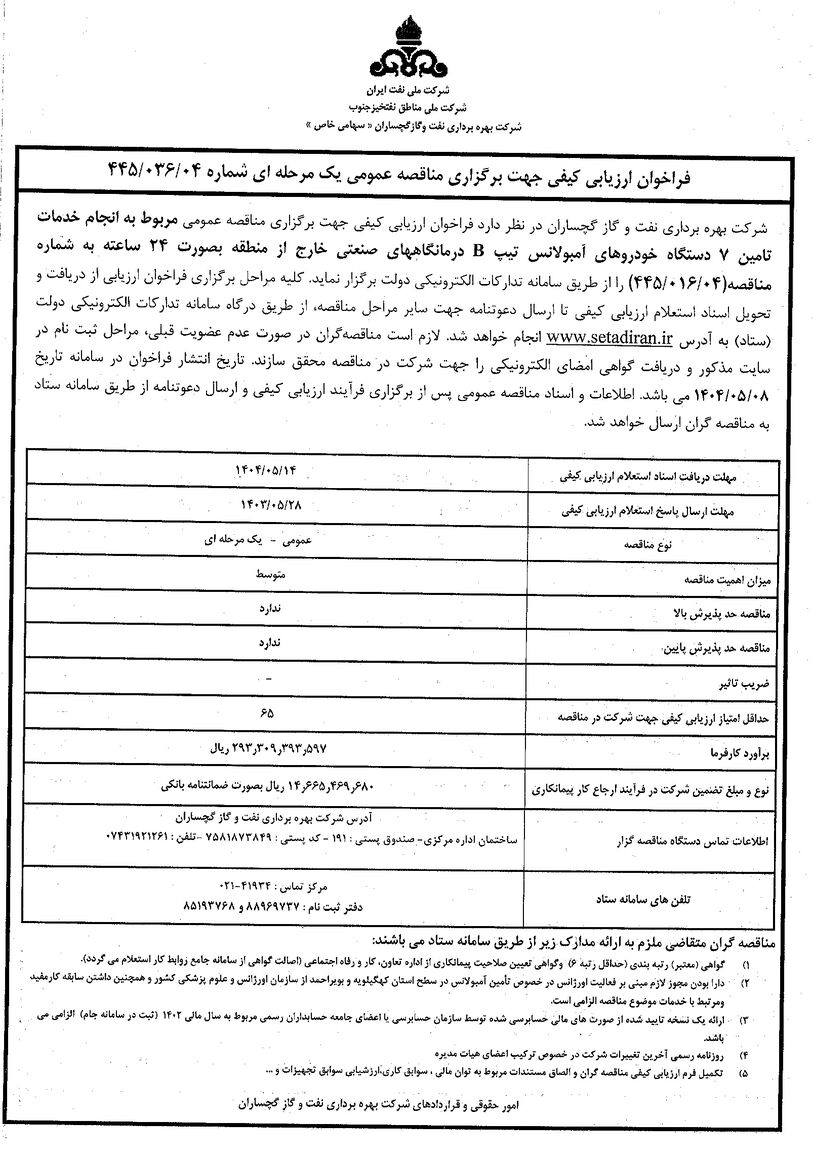 شرکت ملی نفت ایران
شرکت ملی مناطق نفتخیزجنوب
شرکت بهره برداری نفت وگازگچساران « سهامی خاص »
فراخوان ارزیابی کیفی جهت برگزاری مناقصه عمومی یک مرحله ای شماره ۴۴۵/۰۳۶/۰۴
شرکت بهره برداری نفت و گاز گچساران در نظر دارد فراخوان ارزیابی کیفی جهت برگزاری مناقصه عمومی مربوط به انجام خدمات
تامین ۷ دستگاه خودروهای آمبولانس تیپ B درمانگاههای صنعتی خارج از منطقه بصورت ۲۴ ساعته به شماره
مناقصه(۴۴۵/۰۱۶/۰۴) را از طریق سامانه تدارکات الکترونیکی دولت برگزار نماید. کلیه مراحل برگزاری فراخوان ارزیابی از دریافت و
تحویل اسناد استعلام ارزیابی کیفی تا ارسال دعوتنامه جهت سایر مراحل مناقصه، از طریق درگاه سامانه تدارکات الکترونیکی دولت
(ستاد) به آدرس www.setadiran.ir انجام خواهد شد. لازم است مناقصه‌گران در صورت عدم عضویت قبلی، مراحل ثبت نام در
سایت مذکور و دریافت گواهی امضای الکترونیکی را جهت شرکت در مناقصه محقق سازند. تاریخ انتشار فراخوان در سامانه تاریخ
۱۴۰۴/۰۵/۰۸ می باشد. اطلاعات و اسناد مناقصه عمومی پس از برگزاری فرآیند ارزیابی کیفی و ارسال دعوتنامه از طریق سامانه ستاد
به مناقصه گران ارسال خواهد شد.
مهلت دریافت اسناد استعلام ارزیابی کیفی ۱۴۰۴/۰۵/۱۴
مهلت ارسال پاسخ استعلام ارزیابی کیفی ۱۴۰۳/۰۵/۲۸
نوع مناقصه عمومی - یک مرحله ای
میزان اهمیت مناقصه متوسط
مناقصه حد پذیرش بالا ندارد
مناقصه حد پذیرش پایین ندارد
ضریب تاثیر -
حداقل امتیاز ارزیابی کیفی جهت شرکت در مناقصه ۶۵
برآورد کارفرما ۲۹۳٫۳۰۹٫۳۹۳٫۵۹۷ ریال
نوع و مبلغ تضمین شرکت در فرآیند ارجاع کار پیمانکاری ۱۴٫۶۶۵٫۴۶۹٫۶۸۰ ریال بصورت ضمانتنامه بانکی
اطلاعات تماس دستگاه مناقصه گزار آدرس شرکت بهره برداری نفت و گاز گچساران
ساختمان اداره مرکزی- صندوق پستی : ۱۹۱ - کد پستی : ۷۵۸۱۸۷۳۸۴۹ -تلفن : ۰۷۴۳۱۹۲۱۲۶۱
تلفن های سامانه ستاد مرکز تماس : ۴۱۹۳۴-۰۲۱
دفتر ثبت نام : ۸۸۹۶۹۷۳۷ و ۸۵۱۹۳۷۶۸
مناقصه گران متقاضی ملزم به ارائه مدارک زیر از طریق سامانه ستاد می باشند:
۱) گواهی (معتبر) رتبه بندی (حداقل رتبه ۶) وگواهی تعیین صلاحیت پیمانکاری از اداره تعاون، کار و رفاه اجتماعی (اصالت گواهی از سامانه جامع روابط کار استعلام می گردد).
۲) دارا بودن مجوز لازم مبنی بر فعالیت اورژانس در خصوص تأمین آمبولانس در سطح استان کهگیلویه و بویراحمد از سازمان اورژانس و علوم پزشکی کشور و همچنین داشتن سابقه کارمفید
ومرتبط با خدمات موضوع مناقصه الزامی است.
۳) ارائه یک نسخه تایید شده از صورت های مالی حسابرسی شده توسط سازمان حسابرسی یا اعضای جامعه حسابداران رسمی مربوط به سال مالی ۱۴۰۲ (ثبت در سامانه جام) الزامی می
باشد.
۴) روزنامه رسمی آخرین تغییرات شرکت در خصوص ترکیب اعضای هیات مدیره
۵) تکمیل فرم ارزیابی کیفی مناقصه گران و الصاق مستندات مربوط به توان مالی ، سوابق کاری،ارزشیابی سوابق تجهیزات و ...
امور حقوقی و قراردادهای شرکت بهره برداری نفت و گاز گچساران